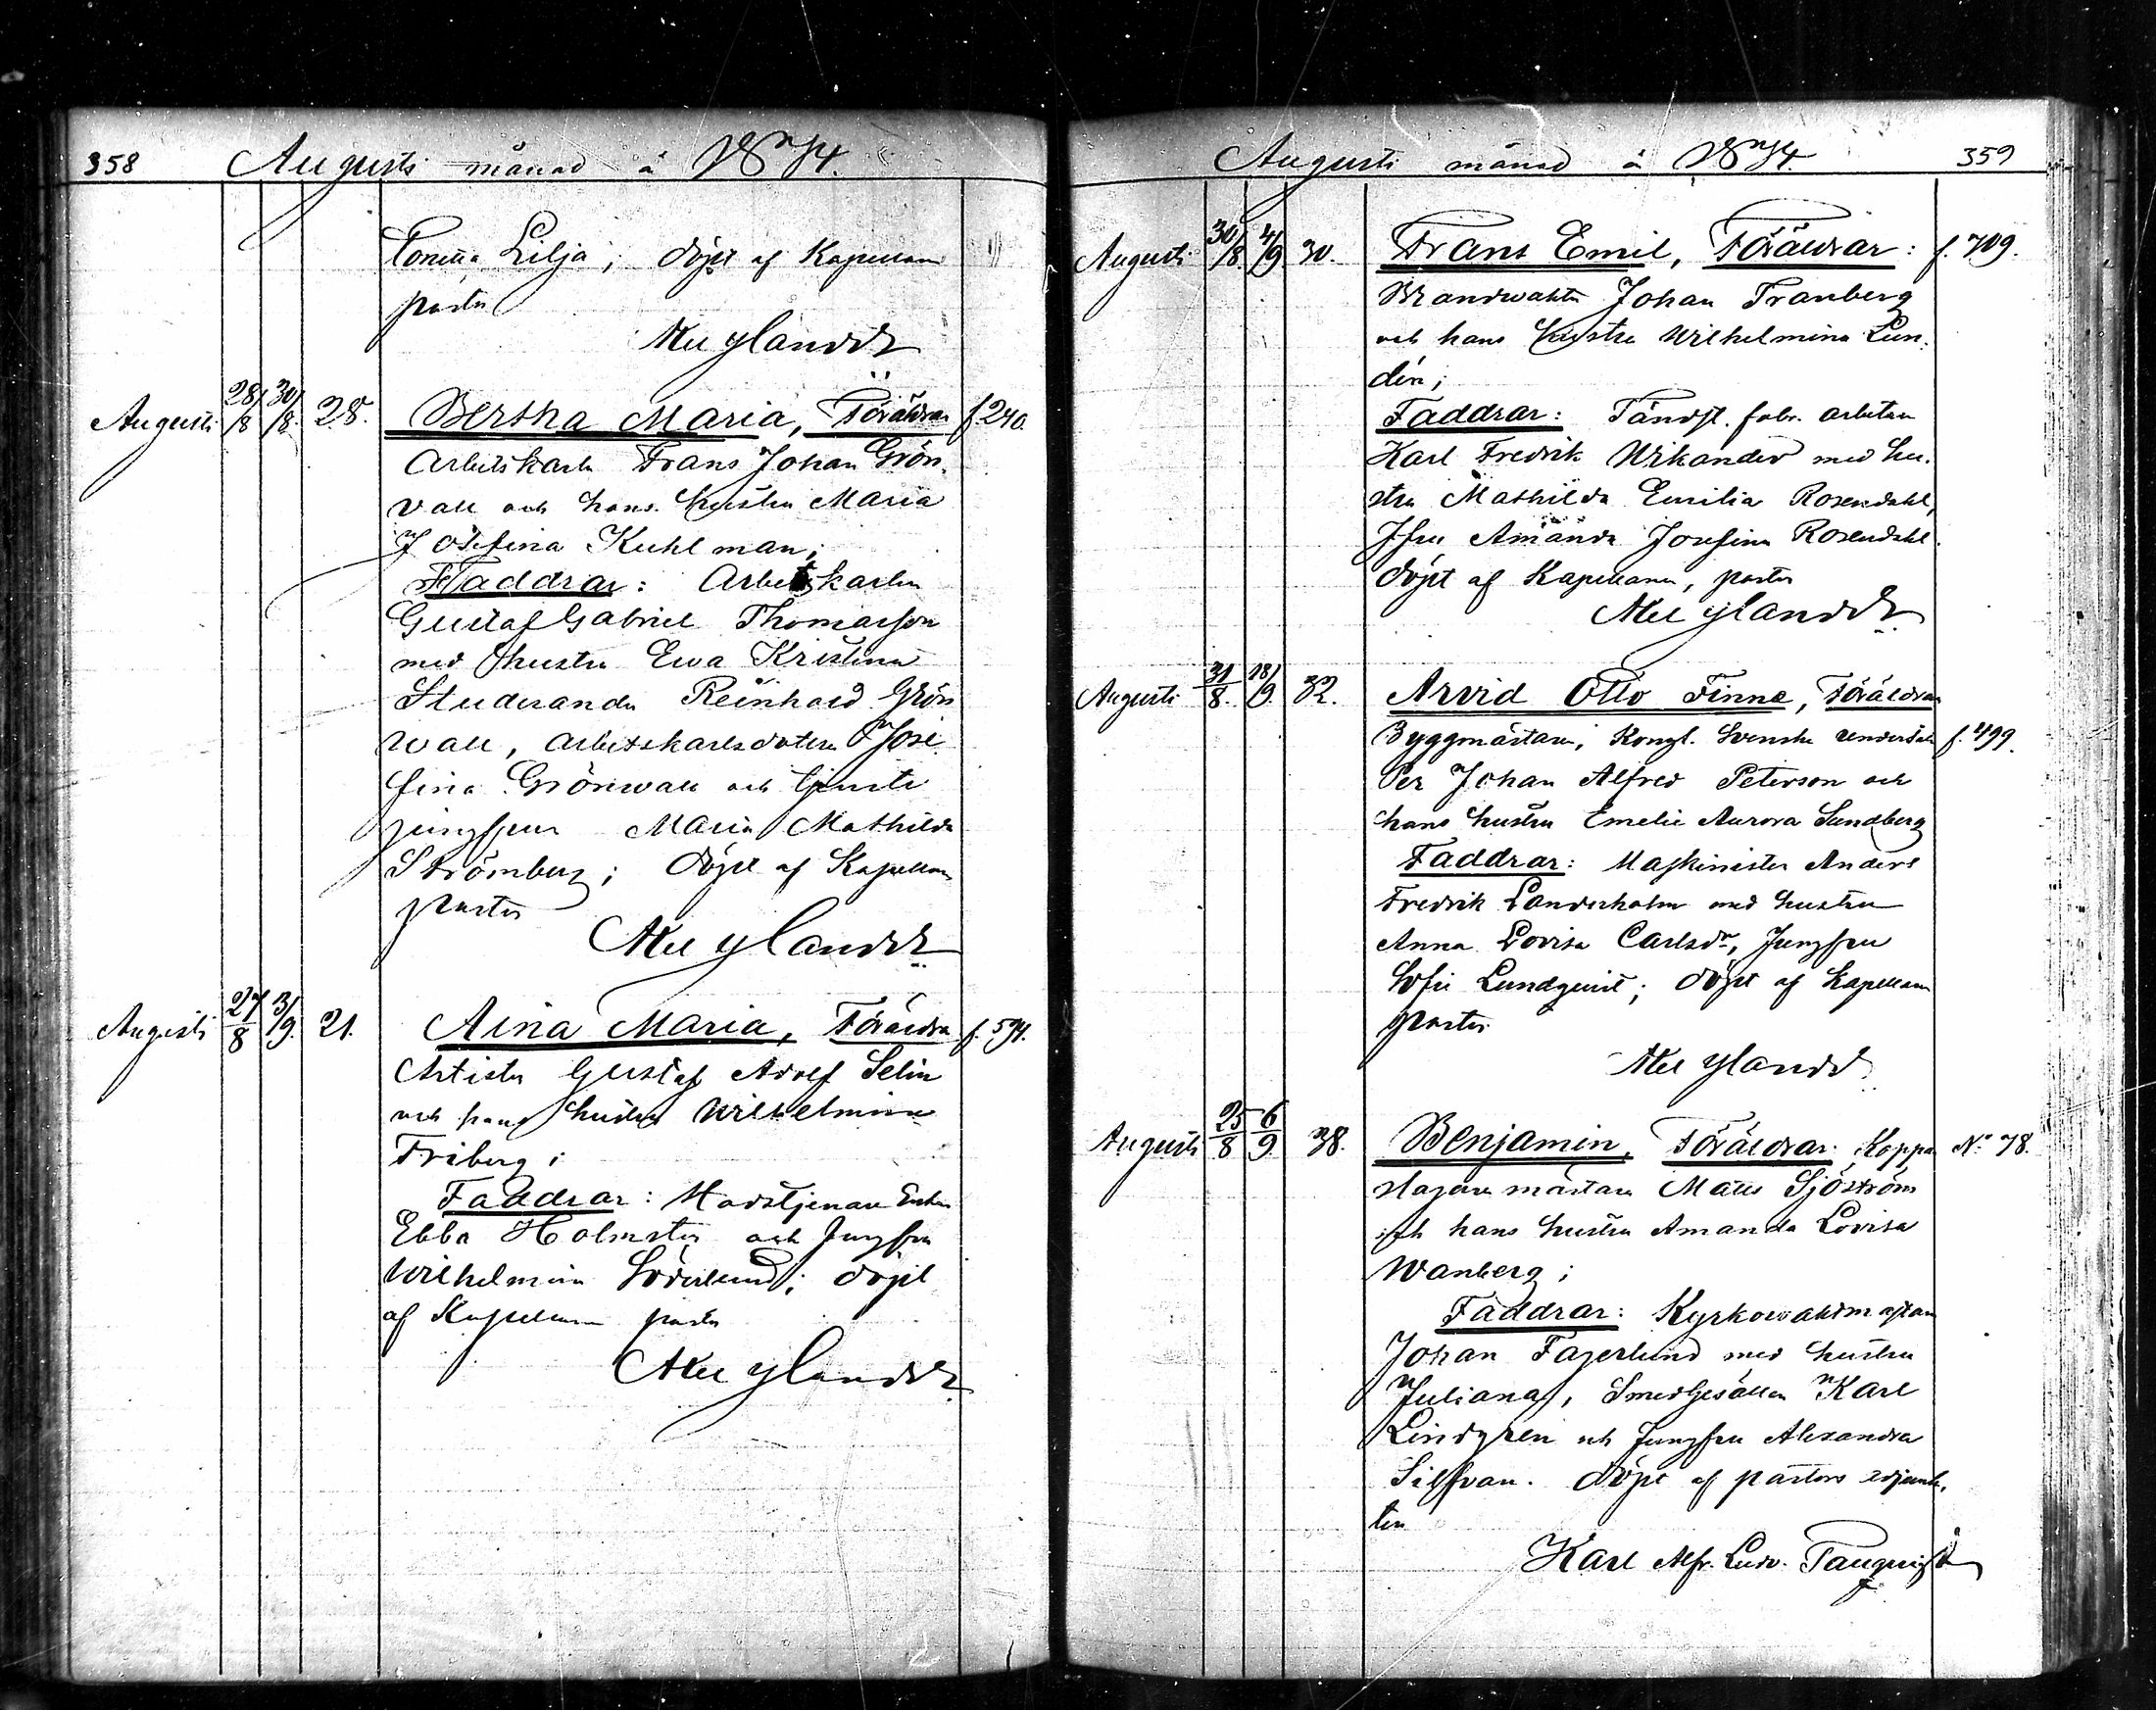 358 Augusti månad å 1874.
Lilja; döpt af Kapellan
pastor
Augusti 28/8 30/8. 28. Bertha Maria, Föräldrar f. 240.
Arbetskarln Frans Johan Grön-
vall och hans hustru Maria
Josefina Kuhlman;
Faddrar: Arbetskarln
Gustaf Gabriel Thomasson
med hustru Ewa Kristina
Studeranden Reinhard Grön
wall, arbetskarlsdottern Jose
fina Grönwall och tjenste
jungfrun Maria Mathilda
Strömberg; döpt af Kapellan
pastor
Augusti 27/8 3/9. 21. Aina Maria, Föräldra f. 594.
Artisten Gustaf Adolf Selin
och hans hustru Wilhelmina
Friberg;
Faddrar: Enkan
Ebba Holmstén och Jungfru
Wilhelmina Söderlund; döpt
af Kapellanen pastor
Augusti månad å 1874. 359
Augusti 30/8. 4/9. 30. Frans Emil, Föräldrar: f. 709.
Brandwakten Johan Tranberg
och hans hustru Wilhelmina Lun-
dén;
Faddrar: Tändst. fabr. arbetaren
Karl Fredrik Wikander med hu-
stru Mathilda Emilia Rosendahl,
Jfru Amanda Josefina Rosendahl.
döpt af Kapellanen, pastor
Augusti 31/8. 18/9. 32. Arvid Otto Finne, Föräldrar
Byggmästaren, Kongl. Svenske undersåten f. 499.
Per Johan Alfred Peterson och
hans hustru Emelie Aurora Sundberg
Faddrar: Maskinisten Anders
Fredrik Landerholm med hustru
Anna Lovisa Carlsdr, Jungfru
Sofie Lundqvist; döpt af Kapellanen
pastor
Augusti 25/8 6/9 38. Benjamin, Föräldrar: Koppar No 78.
slagare mästaren Matts Sjöström
och hans hustru Amanda Lovisa
Wanberg;
Faddrar: Kyrkowaktmästaren
Johan Fagerlund med hustru
Juliana, Smedgesällen Karl
Lindgren och Jungfru Alexandra
Silfvan. döpt af pastors adjunk-
ten
Karl Alfr. Ludv.